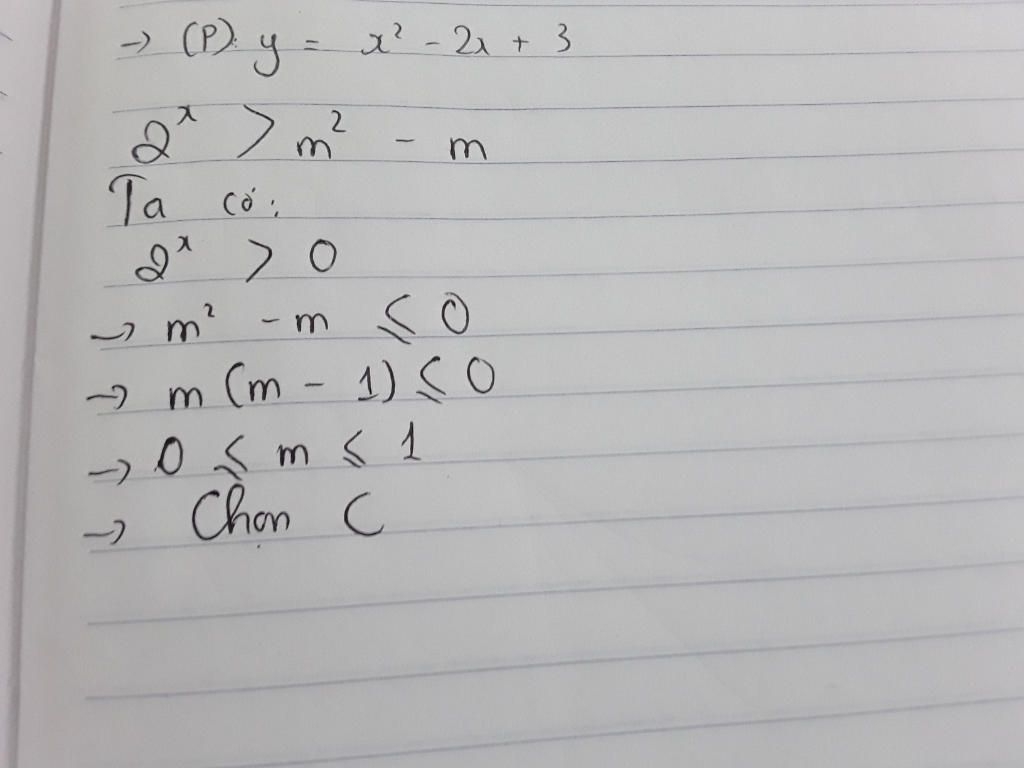 → (P): y = x² - 2x + 3
2ˣ > m² - m
Ta có:
2ˣ > 0
→ m² - m ⩽ 0
→ m (m - 1) ⩽ 0
→ 0 ⩽ m ⩽ 1
→ Chọn C